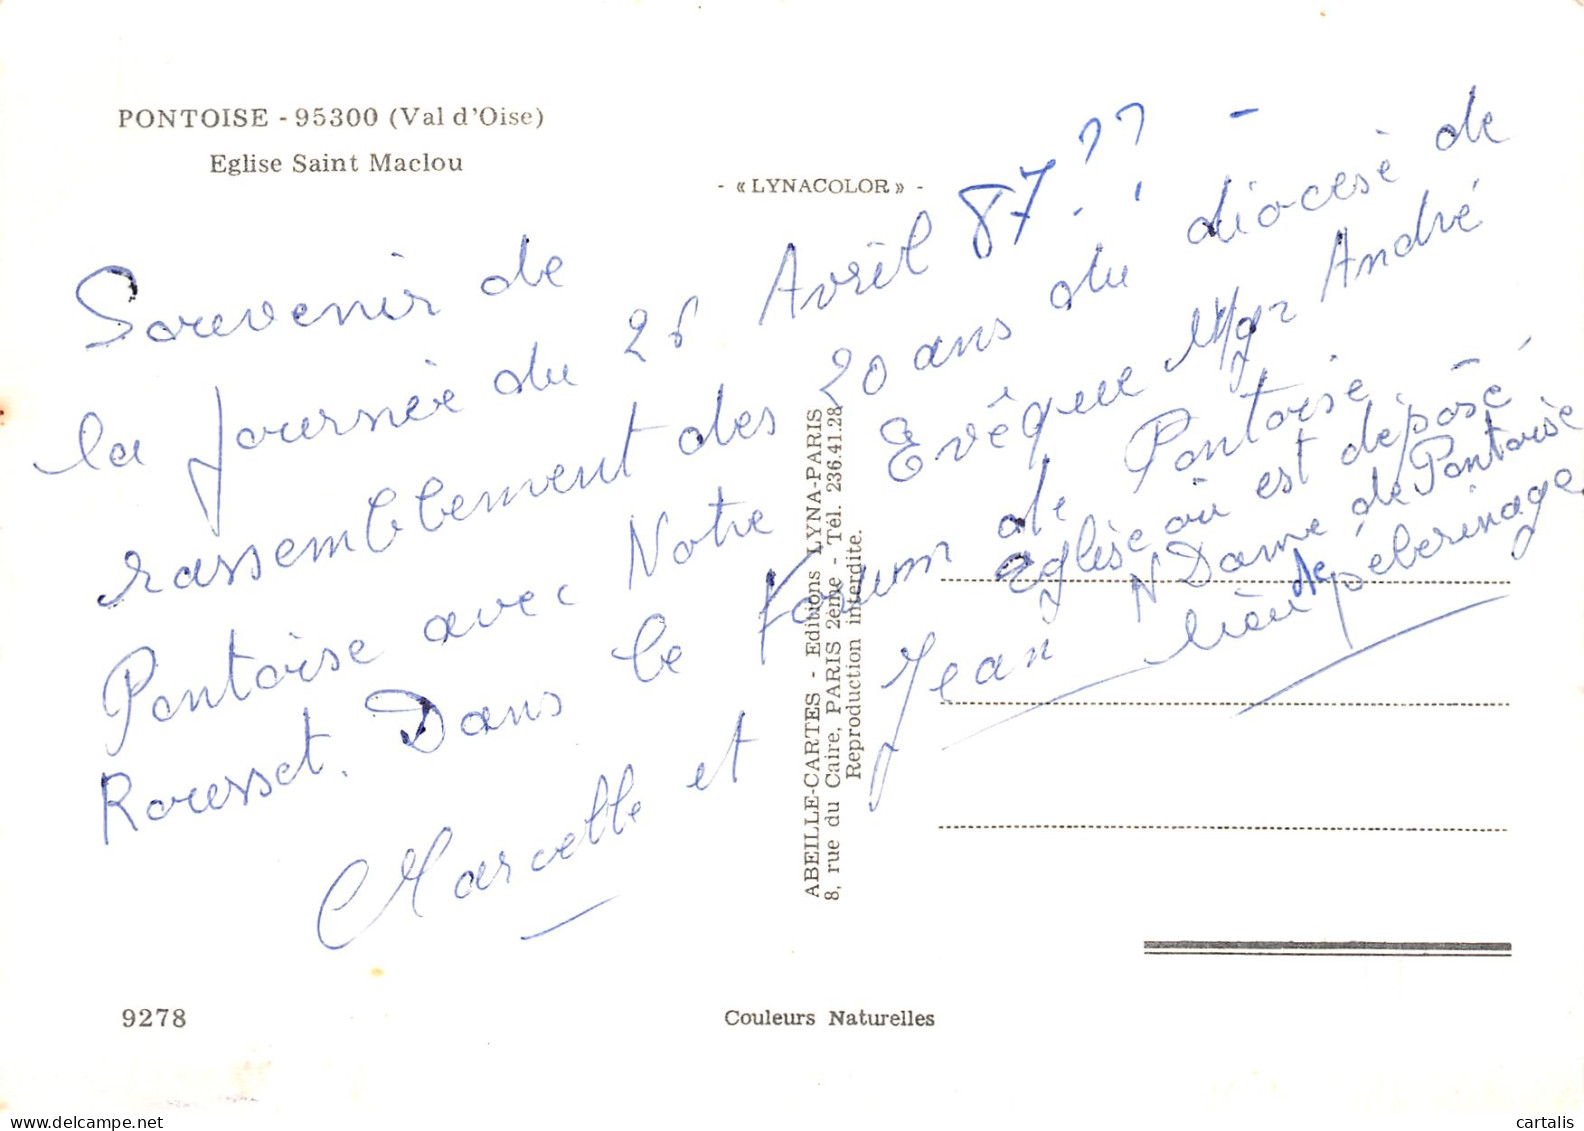 PONTOISE - 95300 (Val d'Oise)
Eglise Saint Maclou
- « LYNACOLOR » -
Souvenir de
la journée du 26 Avril 87 ?? -
rassemblement des 20 ans du diocèse de
Pontoise avec Notre Evêque Mgr André
Rousset. Dans le Forum de Pontoise
Eglise où est déposé
N Dame de Pontoise
lieu de pélerinage
Marcelle et Jean
ABEILLE-CARTES - Editions LYNA-PARIS
8, rue du Caire, PARIS 2ème - Tél. 236.41.28
Reproduction interdite.
9278
Couleurs Naturelles
www.delcampe.net
cartalis